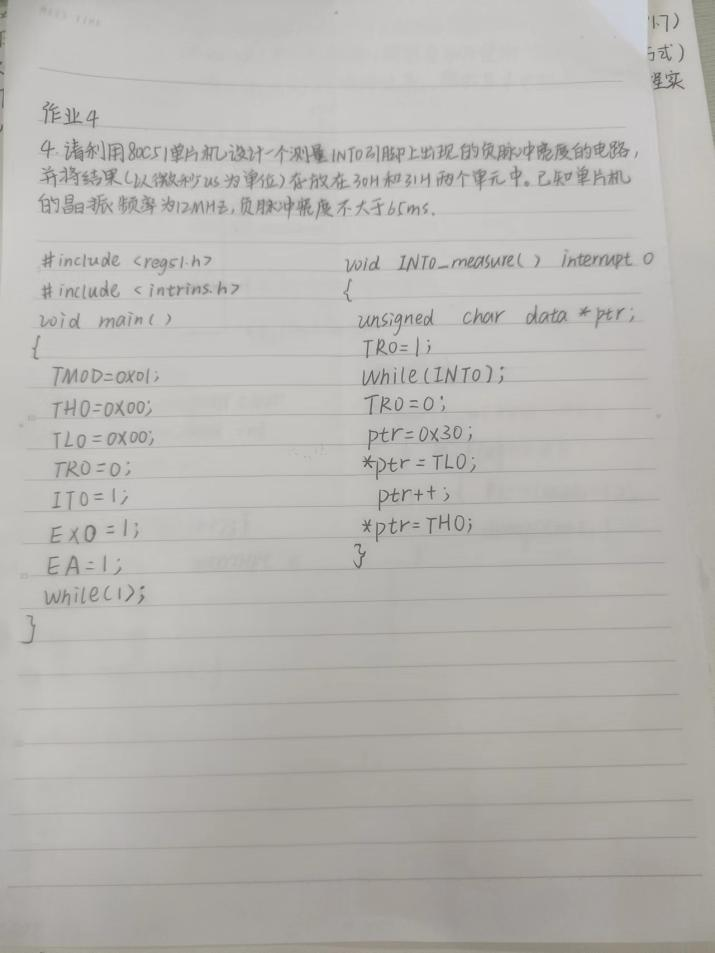 1.7)
方式)
程实
作业4
4. 请利用80C51单片机设计一个测量INT0引脚上出现的负脉冲宽度的电路,
并将结果(以微秒us为单位)存放在30H和31H两个单元中。已知单片机
的晶振频率为12MHz,负脉冲宽度不大于65ms.
#include <reg51.h>
#include <intrins.h>
void main()
{
TMOD=0X01;
TH0=0X00;
TL0=0X00;
TR0=0;
IT0=1;
EX0=1;
EA=1;
while(1);
}
void INT0_measure() interrupt 0
{
unsigned char data *ptr;
TR0=1;
while(INT0);
TR0=0;
ptr=0x30;
*ptr=TL0;
ptr++;
*ptr=TH0;
}